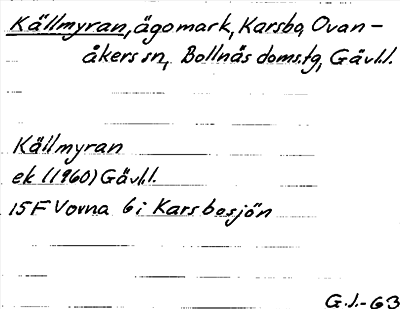 Källmyran, ägomark, Karsbo, Ovan-
åkers sn, Bollnås doms.tg, Gävl.l.
Källmyran
ek (1960) Gävl.l.
15F Voxna 6i Karsbosjön
G.J.-63